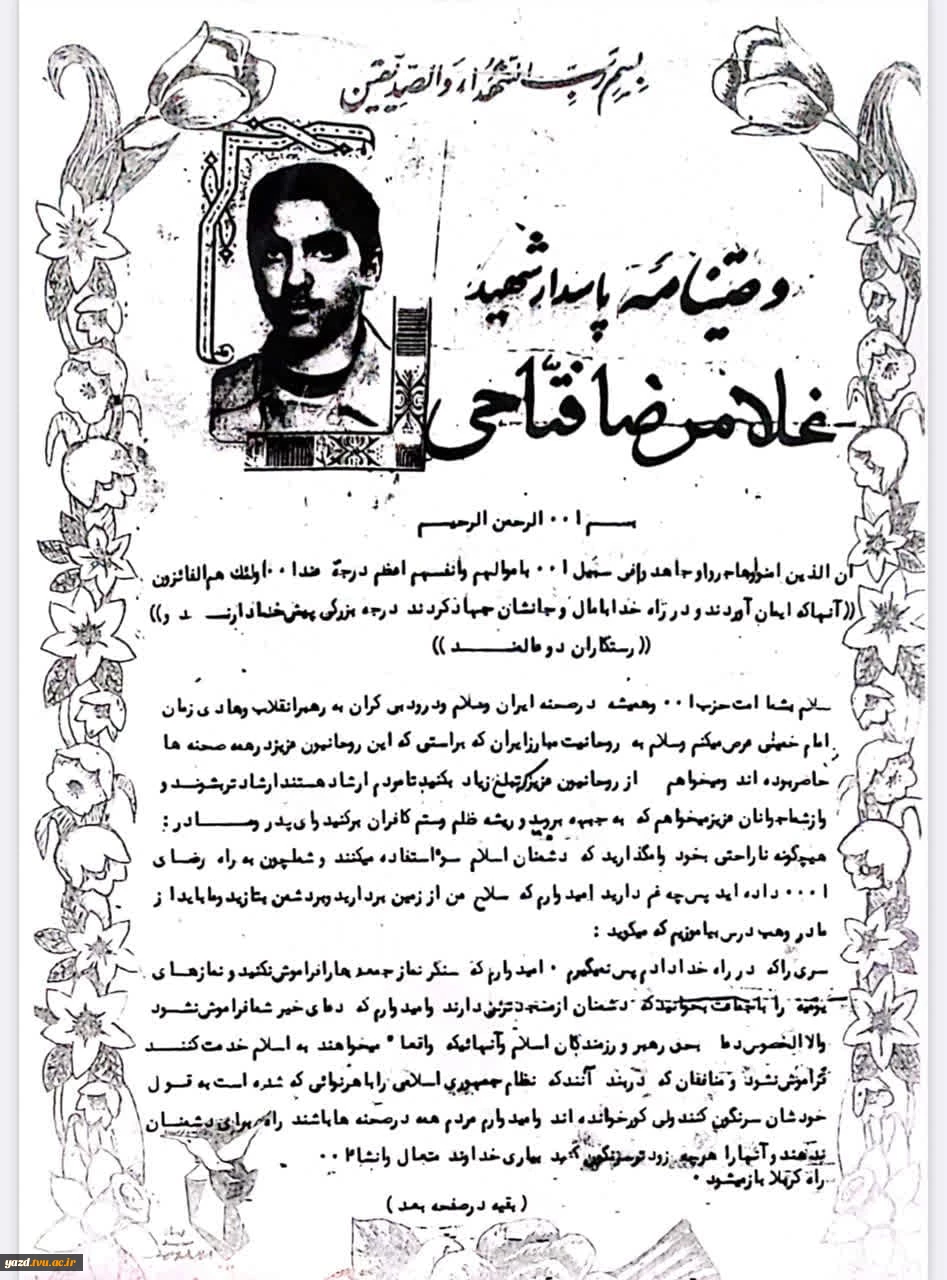 بسم رب الشهداء والصدیقین
وصیتنامه پاسدار شهید
غلامرضا فتاحی
بسم ا۰۰ الرحمن الرحیم
ان الذین امنوا وهاجروا و جاهدوا فی سبیل ا۰۰ باموالهم وانفسهم اعظم درجة عندا۰۰ اولئك هم الفائزون
((آنهاکه ایمان آوردند و در راه خدا با مال و جانشان جهاد کردند درجه بزرگی پیش خدا دارند و))
((رستکاران دو عالمند))
سلام بشما امت حزب ا۰۰ وهمیشه در صحنه ایران وسلام ودرود بی کران به رهبر انقلاب وهادی زمان
امام خمینی عرض میکنم وسلام به روحانیت مبارز ایران که براستی که این روحانیون عزیز در همه صحنه ها
حاضر بوده اند ومیخواهم از روحانیون عزیز که تبلغ زیاد بکنید تا مردم ارشاد هستند ارشاد تر بشوند و
واز شما جوانان عزیز میخواهم که به جبهه بروید و ریشه ظلم وستم کافران برکنید وای پدر ومادر :
هیچگونه ناراحتی بخود وامگذارید که دشمنان اسلام سؤ استفاده میکنند و شما چون به راه رضای
ا۰۰۰ داده اید پس چه غم دارید امیدوارم که سلاح من از زمین بردارید وبر دشمن بتازید وما باید از
مادر وهب درس بیاموزیم که میکوید :
سری را که در راه خدا دادم پس نمیگیرم ۰ امیدوارم که سنگر نماز جمعه ها را فراموش نکنید و نمازهای
یومیه را با جماعت بخوانید که دشمنان از مسجد ترس دارند وامیدوارم که دعای خیر شما فراموش نشود
والا الخصوص دعا بحق رهبر و رزمندکان اسلام وآنهائیکه واقعا" میخواهند به اسلام خدمت کنند
فراموش نشود و منافقان که در بند آنند که نظام جمهوری اسلامی را با هر نوائی که شده است به قول
خودشان سرنگون کنند ولی کور خوانده اند وامیدوارم مردم همه در صحنه ها باشند راه برای دشمنان
ندهند و آنها را هر چه زود تر سرنگون کنید بیاری خداوند متعال وانشا۰۰۱
راه کربلا باز میشود ۰
( بقیه در صفحه بعد )
yazd.tvu.ac.ir